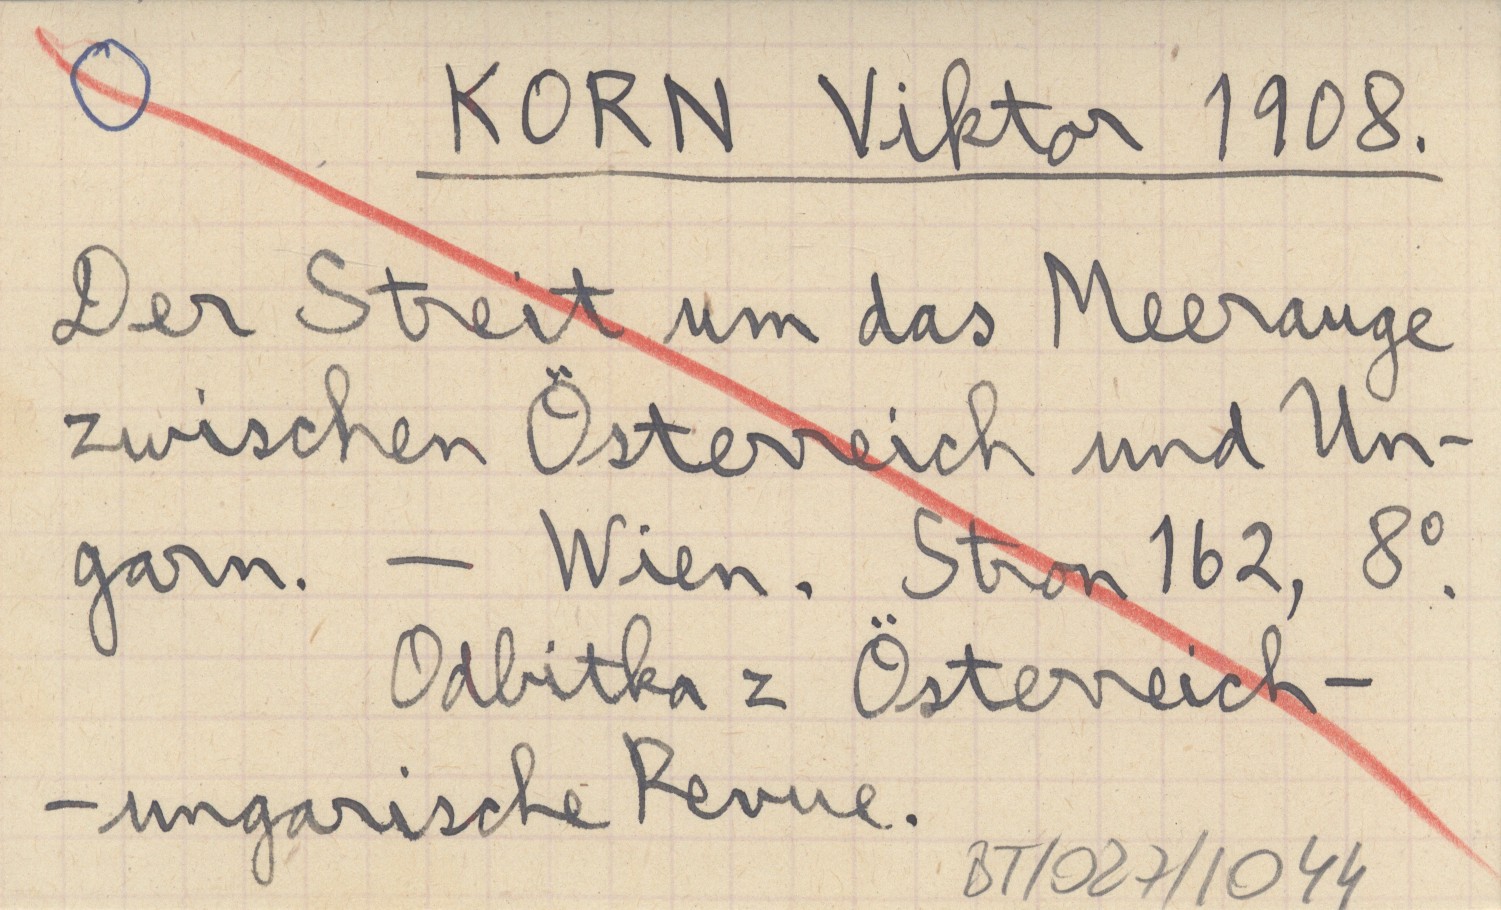 KORN Viktor 1908.
Der Streit um das Meerauge
zwischen Österreich und Un-
garn. — Wien. Stron 162, 8°.
Odbitka z Österreich-
-ungarische Revue.
BT/027/1044